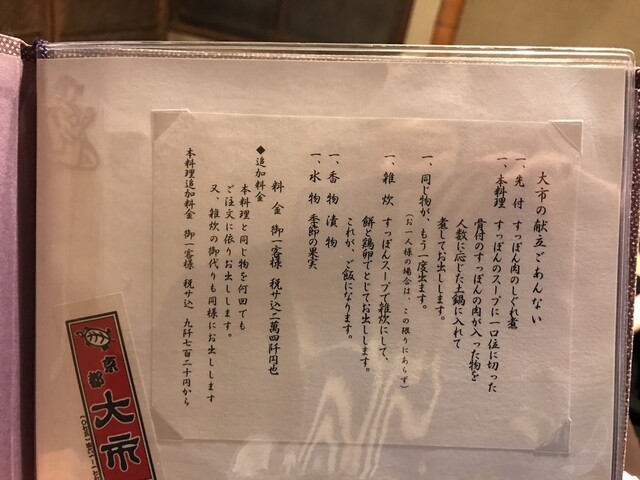 大市の献立ごあんない
一、先付 すっぽん肉のしぐれ煮
一、本料理 すっぽんのスープに一口位に切った
骨付のすっぽんの肉が入った物を
人数に応じた土鍋に入れて
煮してお出しします。
一、同じ物が、もう一度出ます。
(お一人様の場合は、この限りにあらず)
一、雑炊 すっぽんスープで雑炊にして、
餅と鶏卵でとじてお出しします。
これが、ご飯になります。
一、香物 漬物
一、水物 季節の果実
料金 御一客様 税サ込二萬四阡円也
◆追加料金
本料理と同じ物を何回でも
ご注文に依りお出しします。
又、雑炊の御代りも同様にお出しします
本料理追加料金 御一客様 税サ込 九阡七百二十円から
京都
大市